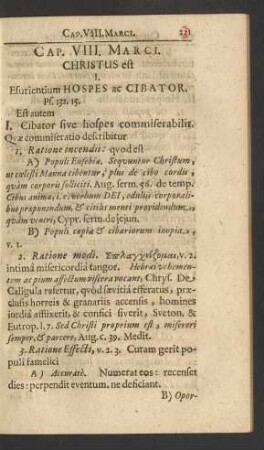 CAP. VIII. MARCI. 221
CAP. VIII. MARCI.
CHRISTUS est
I.
Esurientium HOSPES ac CIBATOR.
Ps. 132. 15.
Est autem
I. Cibator sive hospes commiserabilis.
Quæ commiseratio describitur
1. Ratione incendii: quod est
A) Populi Eusebia. Sequuntur Christum,
ut cœlesti Manna cibentur, plus de cibo cordis,
quàm corporis solliciti. Aug. serm. 56. de temp.
Cibus animæ, i. e. verbum DEI, edulis corporali-
bus præponendum, & citiùs menti providendum,
quàm ventri, Cypr. serm. de jejun.
B) Populi copia & cibariorum inopia,
v. 1.
2. Ratione modi. Σπλαγχνίζομαι, v. 2.
intimâ misericordiâ tangor. Hebræi vehemen-
tem ac pium affectum viscera vocant, Chrys. De
Caligula refertur, quòd sævitiâ efferatus, præ-
clusis horreis & granariis accensis, homines
inediâ afflixerit, & confici siverit, Sveton. &
Eutrop. l. 7. Sed Christi proprium est, misereri
semper, & parcere, Aug. c. 39. Medit.
3. Ratione Effecti, v. 2. 3. Curam gerit po-
puli famelici
A) Accuratè. Numerat eos: recenset
dies: perpendit eventum, ne deficiant.
B) Opor-